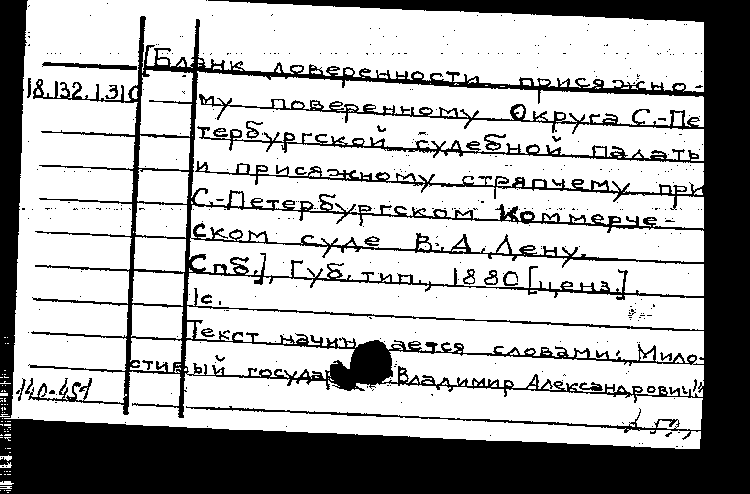 [Бланк доверенности присяжно-
18.132.1.310 му поверенному Округа С.-Пе
тербургской судебной палаты
и присяжному стряпчему при
С.-Петербургском Коммерче-
ском суде В.А.Лену.
Спб.], Губ. тип., 1880 [ценз.].
1с.
Текст начинается словами: „Мило-
стивый государ Владимир Александрович!"
140-451